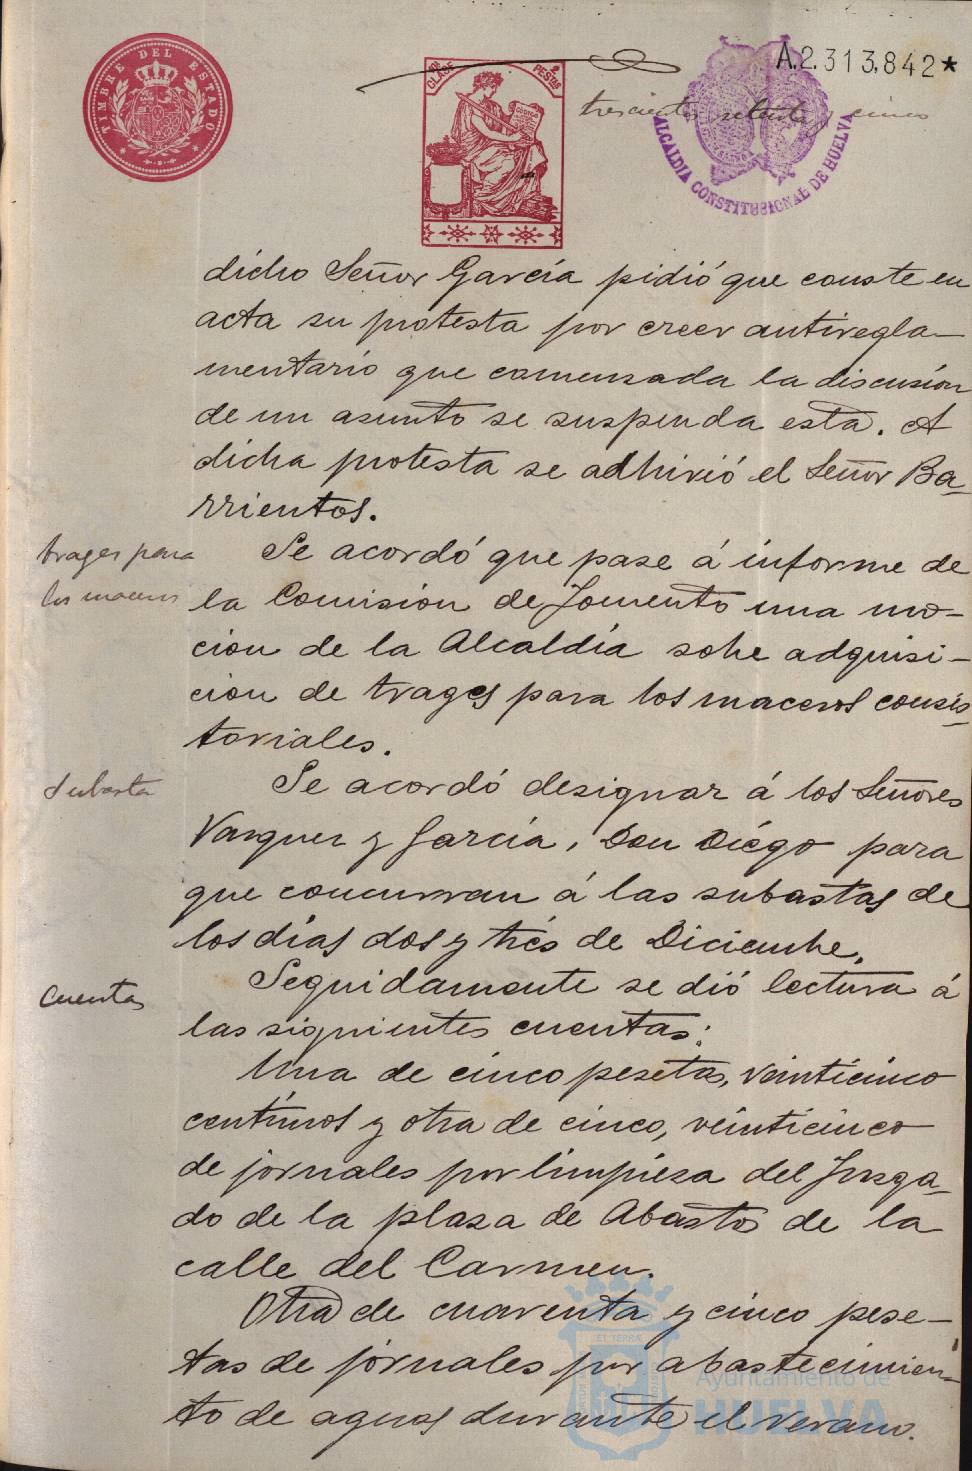 TIMBRE DEL ESTADO
CLASE 8ª
2 PESTAS
A.2.313,842*
trescientos setenta y cinco
ALCALDIA CONSTITUCIONAL DE HUELVA
dicho Señor García pidió que conste en
acta su protesta por creer antiregla-
mentario que comenzada la discusión
de un asunto se suspenda esta. A
dicha protesta se adhirió el Señor Ba-
rrientos.
trages para
los maceros
Se acordó que pase á informe de
la Comision de Fomento una mo-
cion de la Alcaldía sobre adquisi-
cion de trages para los maceros consis-
toriales.
Subasta
Se acordó designar á los Señores
Vazquez y García, Don Diégo para
que concurran á las subastas de
los días dos y trés de Diciembre.
Cuentas
Seguidamente se dió lectura á
las siguientes cuentas:
Una de cinco pesetas, veinticinco
centimos y otra de cinco, veinticinco
de jornales por limpieza del Juzga-
do de la plaza de Abastos de la
calle del Carmen.
Otra de cuarenta y cinco pese-
tas de jornales por abastecimien-
to de aguas durante el verano.
Ayuntamiento de
HUELVA